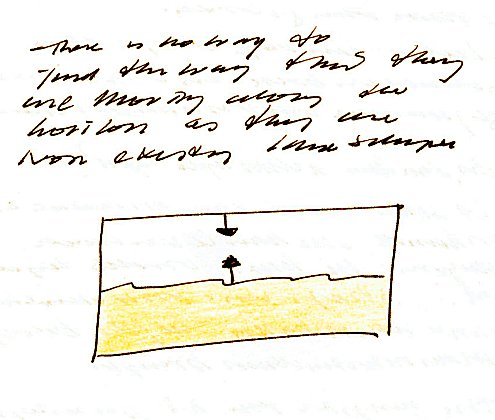 There is no way to
find the way that they
are moving along the
horizon as they are
Non existing landscapes